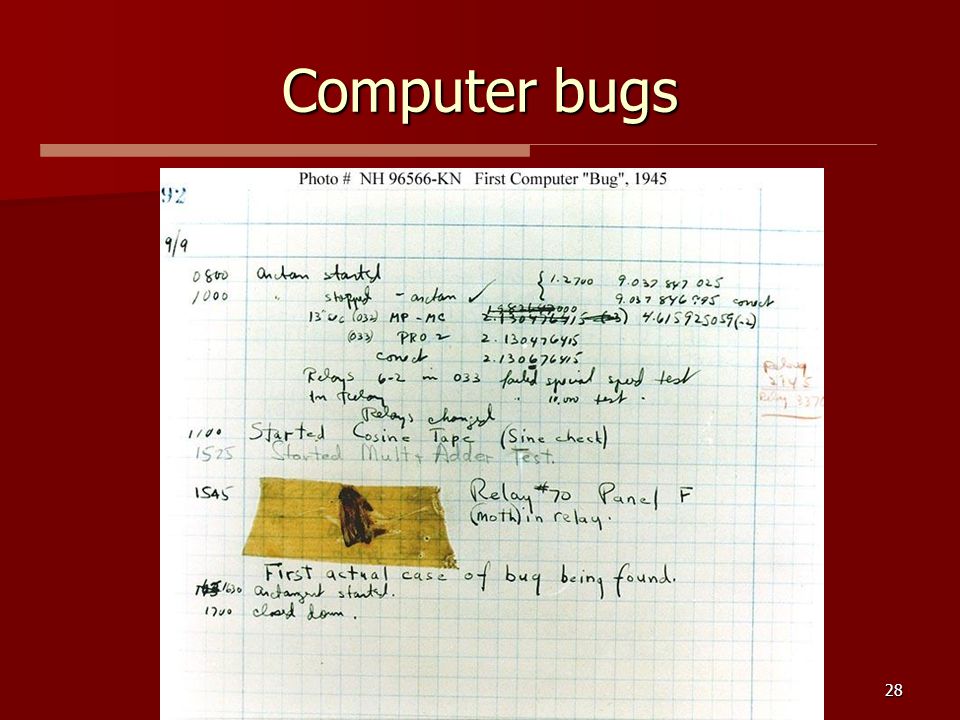 Computer bugs
Photo # NH 96566-KN First Computer "Bug", 1945
92
9/9
0800 arctan started { 1.2700 9.037 847 025
1000 " stopped - arctan ✓ 9.037 846 995 correct
(032) MP - MC 2.130476415 4.615925059(-2)
(033) PRO 2 2.130476415
correct 2.130676415
Relays 6-2 in 033 failed special speed test
In relay " 10.000 test .
Relay
2145
Relay 3370
Relays changed
1100 Started Cosine Tape (Sine check)
1525 Started Mult + Adder Test.
1545 Relay #70 Panel F
(moth) in relay.
First actual case of bug being found.
1630 arctangent started.
1700 closed down .
28